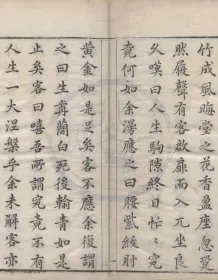 竹成風晦堂之花香盈座忽跫
然履聲有客啟扉而入兀坐良
久嘆曰人生駒隙終日忙忙究
竟何如余漫應之曰腰紫紱肘
黃金如是足矣客不應余復謂
之曰生白死後翰青如是
止矣客曰嘻吾所謂究竟不有
人生一大涅槃乎余未解客亦